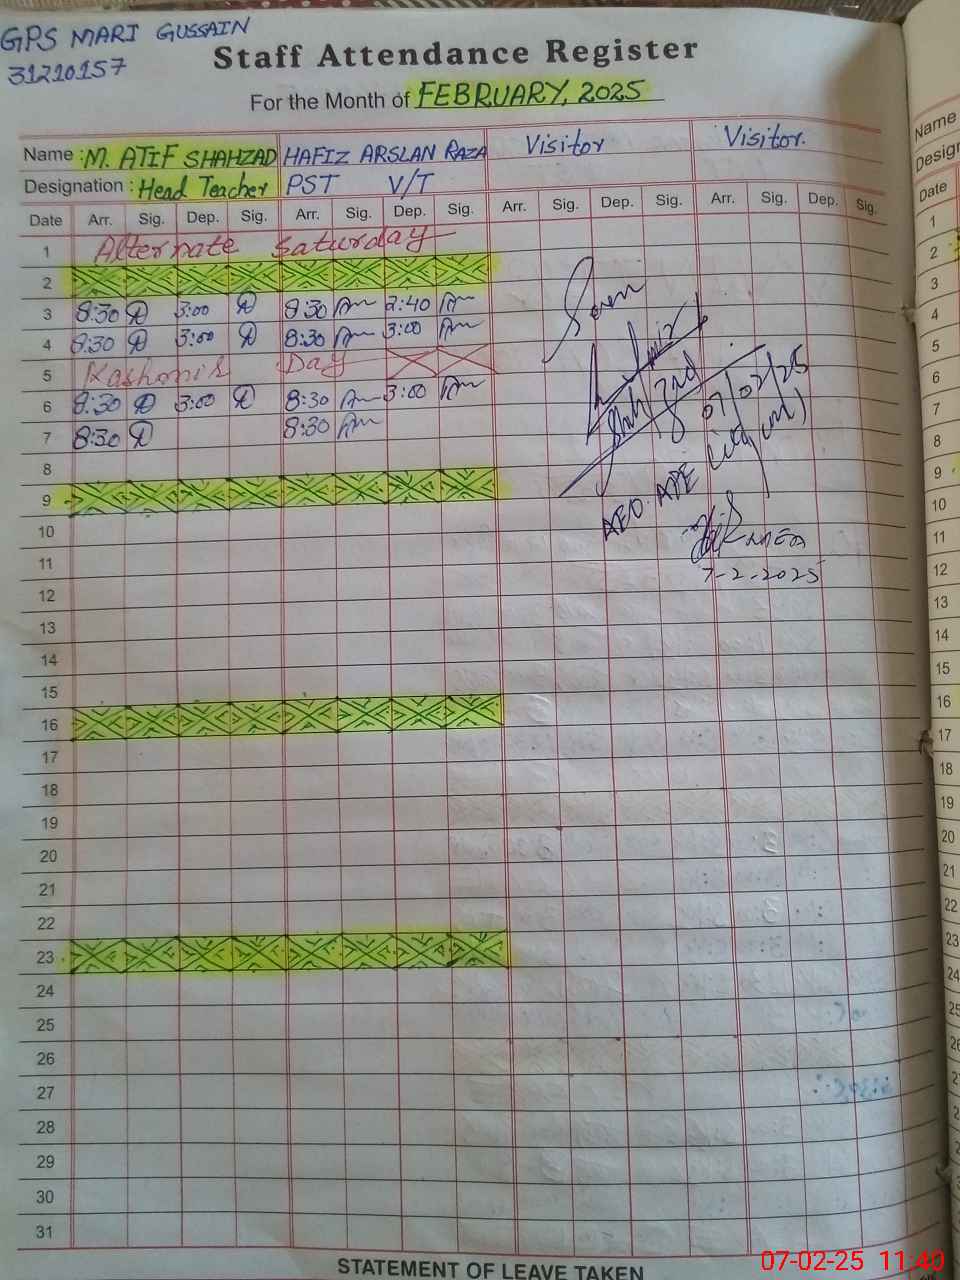 GPS MARI GUSSAIN
31210157
Staff Attendance Register
For the Month of FEBRUARY, 2025
Name : M. ATIF SHAHZAD HAFIZ ARSLAN RAZA Visitor Visitor.
Designation : Head Teacher PST V/T
Date Arr. Sig. Dep. Sig. Arr. Sig. Dep. Sig. Arr. Sig. Dep. Sig. Arr. Sig. Dep. Sig.
1 Alternate Saturday
2
3 8:30 3:00 8:30 2:40
4 8:30 3:00 8:30 3:00
5 Kashmir Day
6 8:30 3:00 8:30 3:00
7 8:30 8:30
8
9
10
11
12
13
14
15
16
17
18
19
20
21
22
23
24
25
26
27
28
29
30
31
Seven
07/02/25
AEO
MEA
7-2-2025
STATEMENT OF LEAVE TAKEN
Name
Design
Date
1
2
3
4
5
6
7
8
9
10
11
12
13
14
15
16
17
18
19
20
21
22
23
24
25
07-02-25 11:40